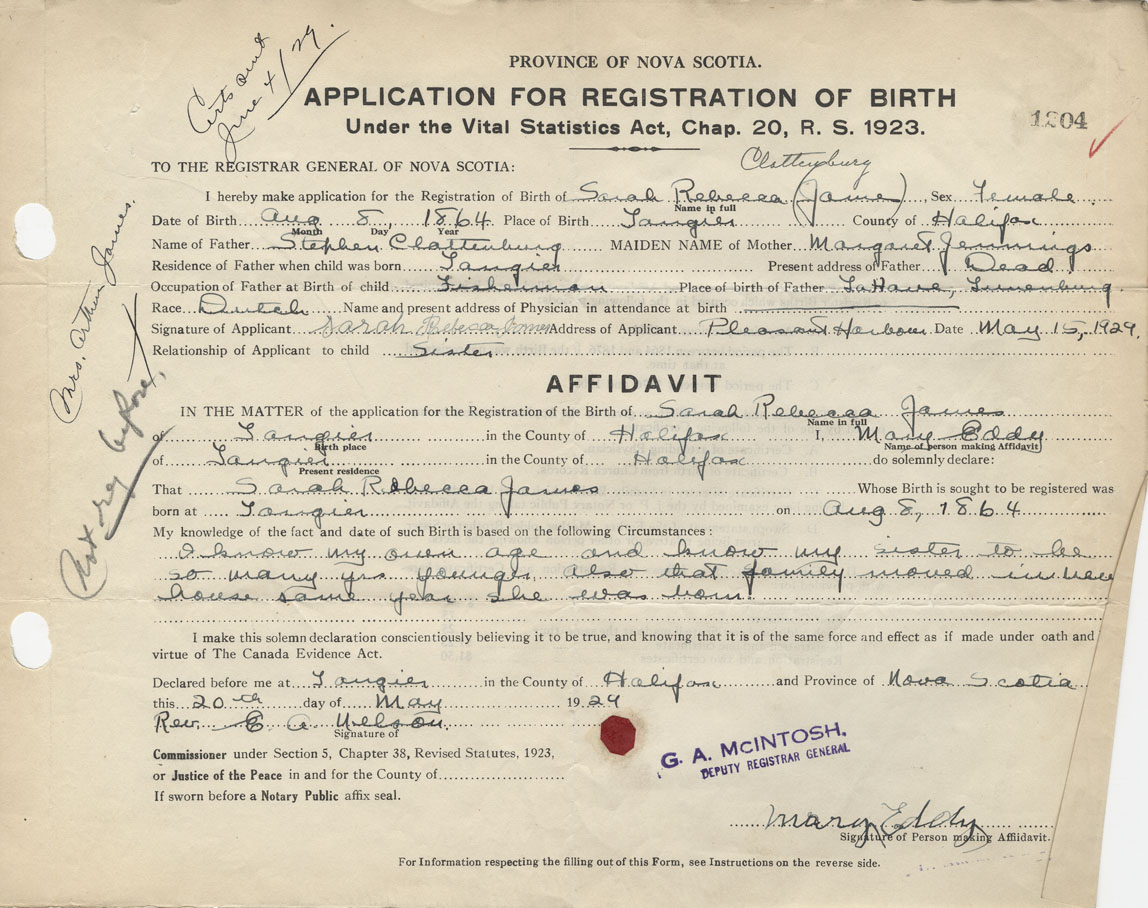 Certs sent
June 4/29.
PROVINCE OF NOVA SCOTIA.
APPLICATION FOR REGISTRATION OF BIRTH
Under the Vital Statistics Act, Chap. 20, R. S. 1923.
1204
TO THE REGISTRAR GENERAL OF NOVA SCOTIA:
Clattenburg
I hereby make application for the Registration of Birth of Sarah Rebecca (James) Sex Female
Name in full
Date of Birth Aug 8, 1864. Place of Birth Tangier County of Halifax
Month Day Year
Name of Father Stephen Clattenburg MAIDEN NAME of Mother Margaret Jennings
Residence of Father when child was born Tangier Present address of Father Dead
Occupation of Father at Birth of child Fisherman Place of birth of Father LaHave, Lunenburg.
Race Dutch Name and present address of Physician in attendance at birth
Signature of Applicant Sarah Rebecca James Address of Applicant Pleasant Harbour Date May 15, 1929.
Relationship of Applicant to child Sister
Mrs. Arthur James.
Not reg before,
AFFIDAVIT
IN THE MATTER of the application for the Registration of the Birth of Sarah Rebecca James
Name in full
of Tangier in the County of Halifax I, Mary Eddy
Birth place Name of person making Affidavit
of Tangier in the County of Halifax do solemnly declare:
Present residence
That Sarah Rebecca James Whose Birth is sought to be registered was
born at Tangier on Aug 8, 1864
My knowledge of the fact and date of such Birth is based on the following Circumstances:
I know my own age and know my sister to be
so many yrs younger, also that family moved in new
house same year she was born.
I make this solemn declaration conscientiously believing it to be true, and knowing that it is of the same force and effect as if made under oath and
virtue of The Canada Evidence Act.
Declared before me at Tangier in the County of Halifax and Province of Nova Scotia
this 20th day of May 1929
Rev. E. A.
Signature of
Commissioner under Section 5, Chapter 38, Revised Statutes, 1923,
or Justice of the Peace in and for the County of
If sworn before a Notary Public affix seal.
G. A. McINTOSH.
DEPUTY REGISTRAR GENERAL
Mary Eddy
Signature of Person making Affidavit.
For Information respecting the filling out of this Form, see Instructions on the reverse side.